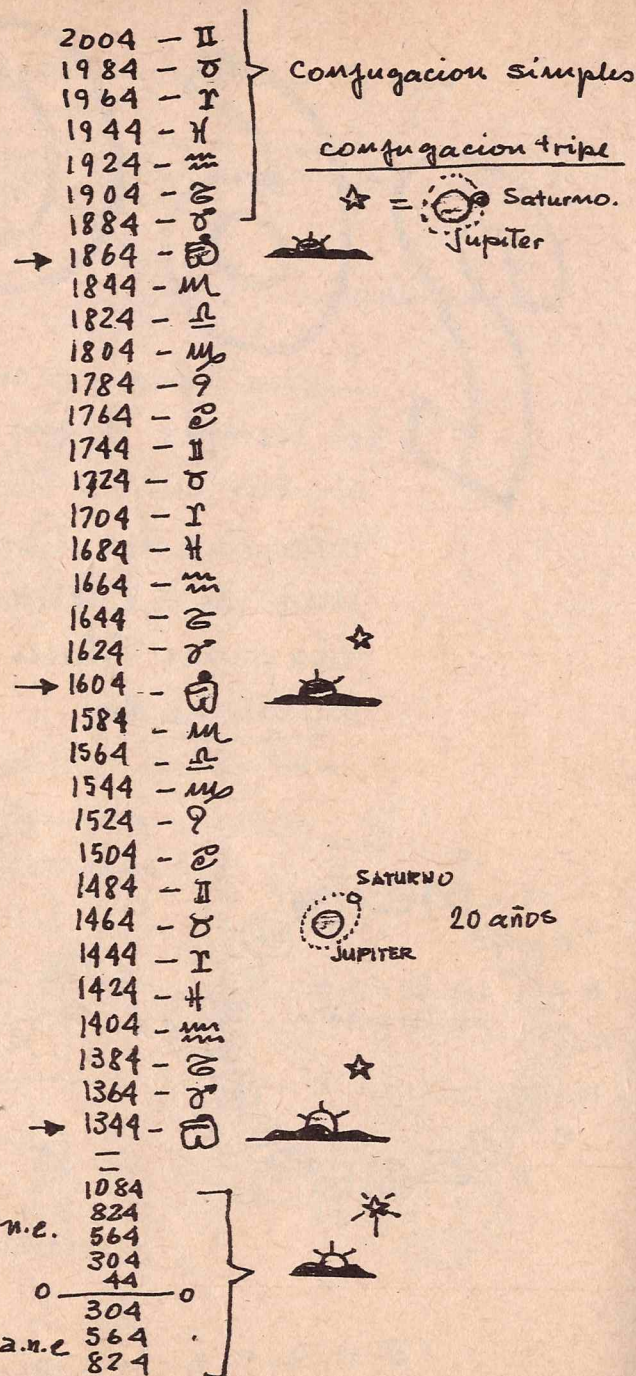 2004 – ♊
1984 – ♉
1964 – ♈
1944 – ♓
1924 – ♒
1904 – ♑
1884 – ♐
conjugacion simples
conjugacion tripe
☆ = Saturno.
Jupiter
→ 1864 –
1844 – ♏
1824 – ♎
1804 – ♍
1784 – ♌
1764 – ♋
1744 – ♊
1724 – ♉
1704 – ♈
1684 – ♓
1664 – ♒
1644 – ♑
1624 – ♐
→ 1604 –
1584 – ♏
1564 – ♎
1544 – ♍
1524 – ♌
1504 – ♋
1484 – ♊
1464 – ♉
1444 – ♈
1424 – ♓
1404 – ♒
1384 – ♑
1364 – ♐
→ 1344 –
SATURNO
20 años
JUPITER
=
1084
824
n.e. 564
304
44
0 0
304
a.n.e 564
824